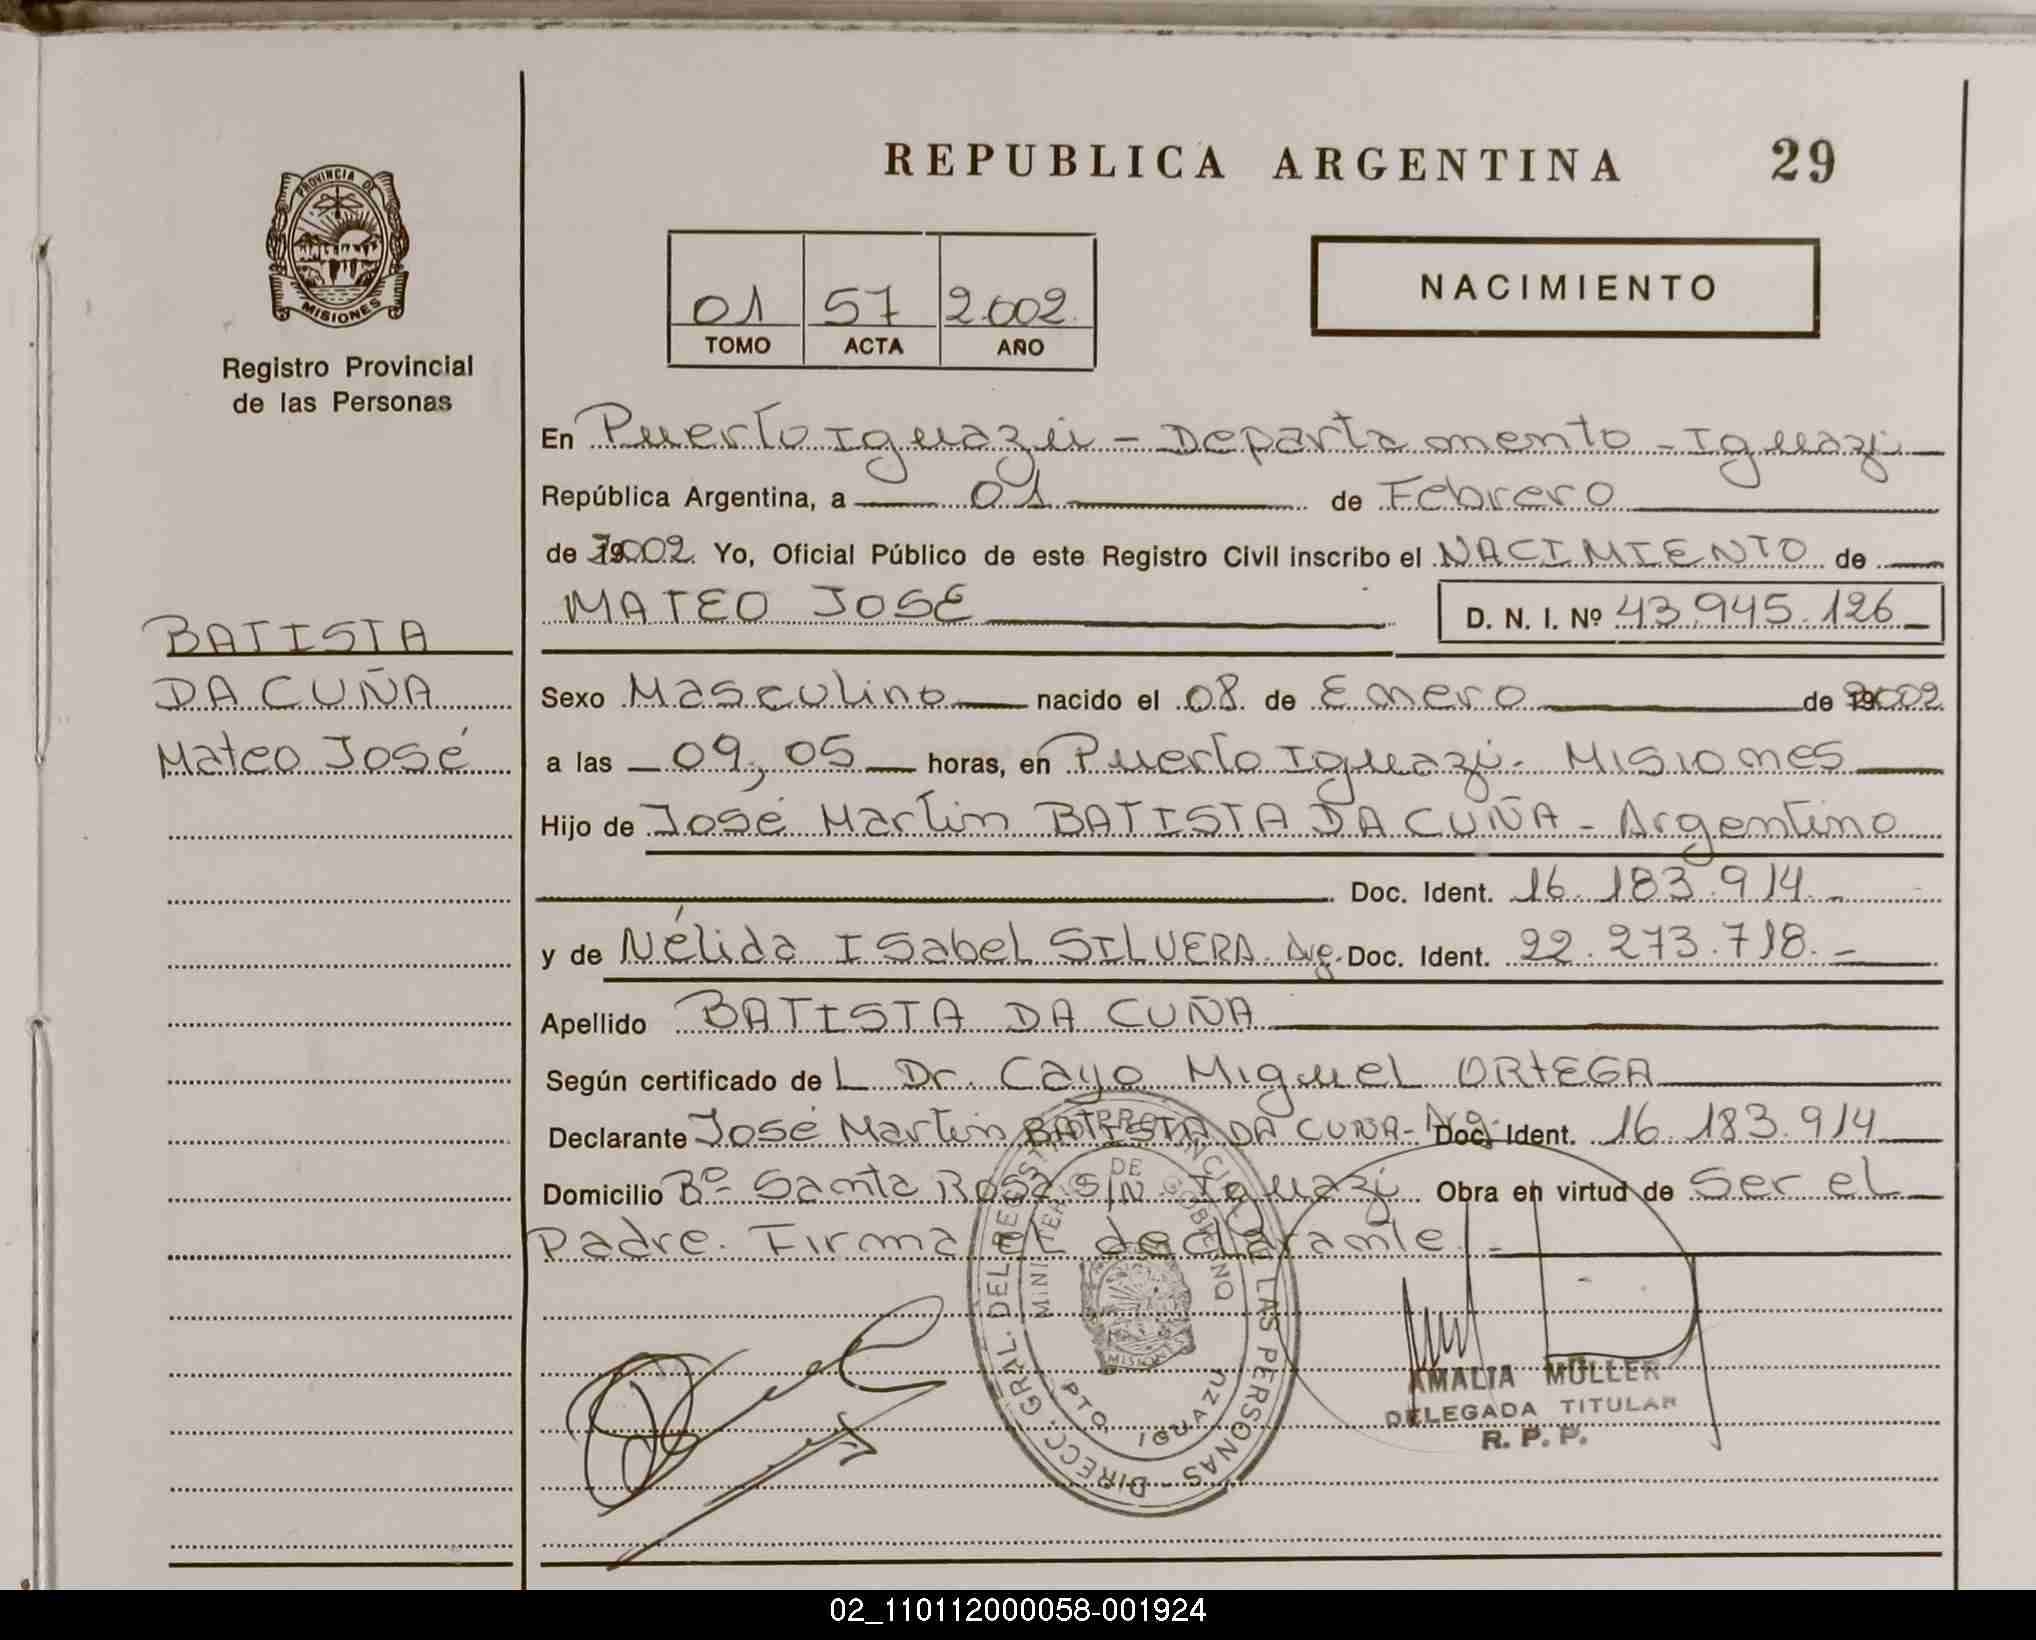 REPUBLICA ARGENTINA 29
PROVINCIA DE
MISIONES
Registro Provincial
de las Personas
01 57 2.002.
TOMO ACTA AÑO
NACIMIENTO
En Puerto Iguazú - Departamento - Iguazú
República Argentina, a 01 de Febrero
de 2002. Yo, Oficial Público de este Registro Civil inscribo el NACIMIENTO de
MATEO JOSE D. N. I. Nº 43.945.126
BATISTA
DA CUÑA
Mateo José
Sexo Masculino nacido el 08 de Enero de 2002
a las 09,05 horas, en Puerto Iguazú - Misiones
Hijo de José Martin BATISTA DA CUÑA - Argentino
Doc. Ident. 16.183.914.-
y de Nélida Isabel SILVERA. Arg. Doc. Ident. 22.273.718.-
Apellido BATISTA DA CUÑA
Según certificado de L Dr. Cayo Miguel ORTEGA
Declarante José Martin BATISTA DA CUÑA - Arg. Doc. Ident. 16.183.914
Domicilio Bº Santa Rosa S/N - Iguazú Obra en virtud de Ser el
Padre. Firma el declarante.-
DIRECC. GRAL. DEL REGISTRO PROVINCIAL DE LAS PERSONAS -
MINISTERIO DE GOBIERNO
MISIONES
PTO. IGUAZU
AMALIA MÜLLER
DELEGADA TITULAR
R. P. P.
02_110112000058-001924